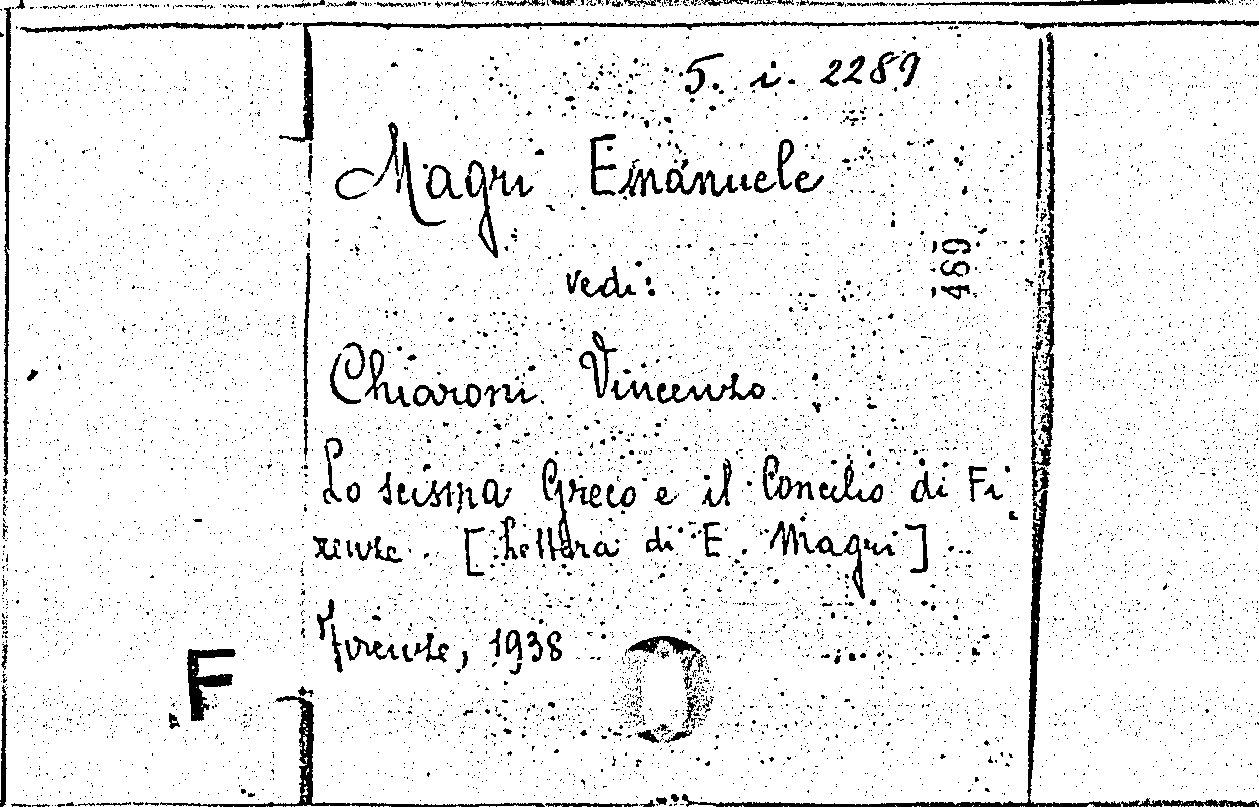 5. i. 2289
Magri Emanuele
469
vedi:
Chiaroni Vincenzo
Lo scisma Greco e il Concilio di Fi
renze. [Lettera di E. Magri]
Firenze, 1938
F